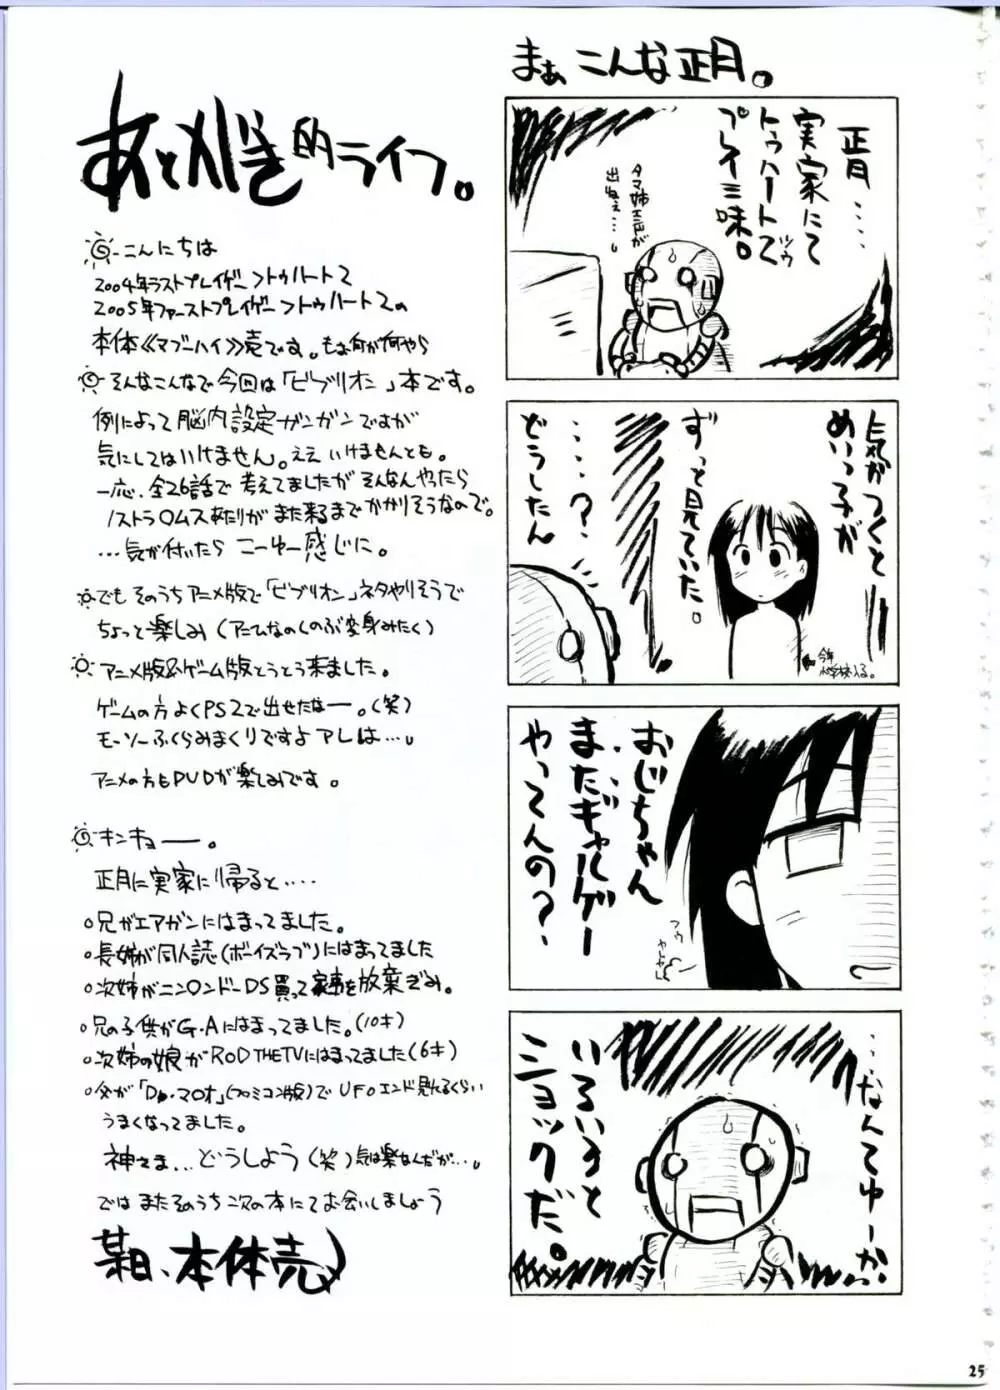 まぁ こんな正月。
正月‥‥
実家にて
トゥハート2
ツゥ
プレイ三味。
タマ姉エンドが
出ねぇ…。
気がつくと──
めいっ子が
ずっと見ていた。
‥‥?
どうしたん
今年
小学校入る。
おじちゃん
まだギャルゲー
やってんの?
フゥ
やれやれ
…なんてゆーか
いろいろと
ショックだ。
あとがき的ライフ。
こんにちは
2004年ラストプレイゲー>トゥハート2
2005年ファーストプレイゲー>トゥハート2の
本体《マブーハイ》売です。もお何が何やら
そんなこんなで今回は「ビブリオン」本です。
例によって脳内設定ガンガンですが
気にしてはいけません。ええ いけませんとも。
一応、全26話で 考えてましたが そんなんやったら
ノストラ○ムスあたりが また来るまでかかりそうなので。
…気が付いたら こーゆー感じに。
でも そのうちアニメ版で「ビブリオン」ネタやりそうで
ちょっと楽しみ(アニムなのしのぶ変身みたく)
アニメ版&ゲーム版とうとう来ました。
ゲームの方 よくPS2で出せたなー。(笑)
モーソーふくらみまくりですよ アレは…。
アニメの方もDVDが楽しみです。
キンキョ──。
正月に実家に帰ると‥‥
○兄がエアガンにはまってました。
○長姉が同人誌(ボーイズラブ)にはまってました
○次姉がニン○ンドーDS買って家事を放棄ぎみ。
○兄の子供がG.Aにはまってました。(10才)
○次姉の娘がROD THE TVにはまってました(6才)
○父が「Dr.マ○オ」(ファミコン版)でUFOエンド見れるくらい
うまくなってました。
神さま…どうしよう(笑)気は楽なんだが…。
では またそのうち 次の本にてお会いしましょう
某日、本体売
25